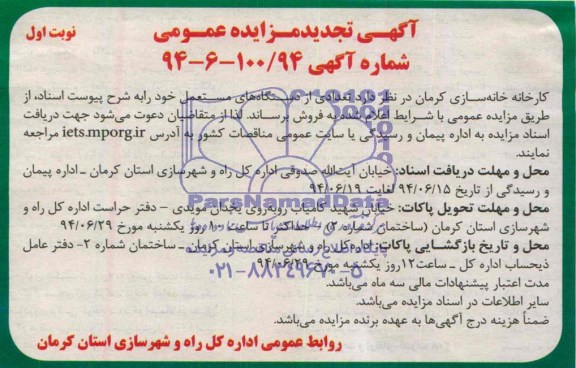 آگهی تجدیدمزایده عمومی
نوبت اول
شماره آگهی ۹۴-۶-۱۰۰/۹۴
کارخانه خانه‌سازی کرمان در نظر دارد تعدادی از دستگاه‌های مستعمل خود رابه شرح پیوست اسناد، از
طریق مزایده عمومی با شرایط اعلام شده به فروش برساند. لذا از متقاضیان دعوت می‌شود جهت دریافت
اسناد مزایده به اداره پیمان و رسیدگی یا سایت عمومی مناقصات کشور به آدرس iets.mporg.ir مراجعه
نمایند.
محل و مهلت دریافت اسناد: خیابان آیت‌الله صدوقی اداره کل راه و شهرسازی استان کرمان ـ اداره پیمان
و رسیدگی از تاریخ ۹۴/۰۶/۱۵ لغایت ۹۴/۰۶/۱۹
محل و مهلت تحویل پاکات: خیابان شهید کامیاب روبه‌روی یخدان مویدی – دفتر حراست اداره کل راه و
شهرسازی استان کرمان (ساختمان شماره ۲) – حداکثر تا ساعت ۱۰ روز یکشنبه مورخ ۹۴/۰۶/۲۹
محل و تاریخ بازگشایی پاکات: اداره کل راه و شهرسازی استان کرمان ـ ساختمان شماره ۲- دفتر عامل
ذیحساب اداره کل ـ ساعت۱۲روز یکشنبه مورخ ۹۴/۰۶/۲۹
مدت اعتبار پیشنهادات مالی سه ماه می‌باشد.
سایر اطلاعات در اسناد مزایده می‌باشد.
ضمناً هزینه درج آگهی‌ها به عهده برنده مزایده می‌باشد.
روابط عمومی اداره کل راه و شهرسازی استان کرمان
ParsNamadData
۰۲۱-۸۸۳۴۹۶۷۰-۵